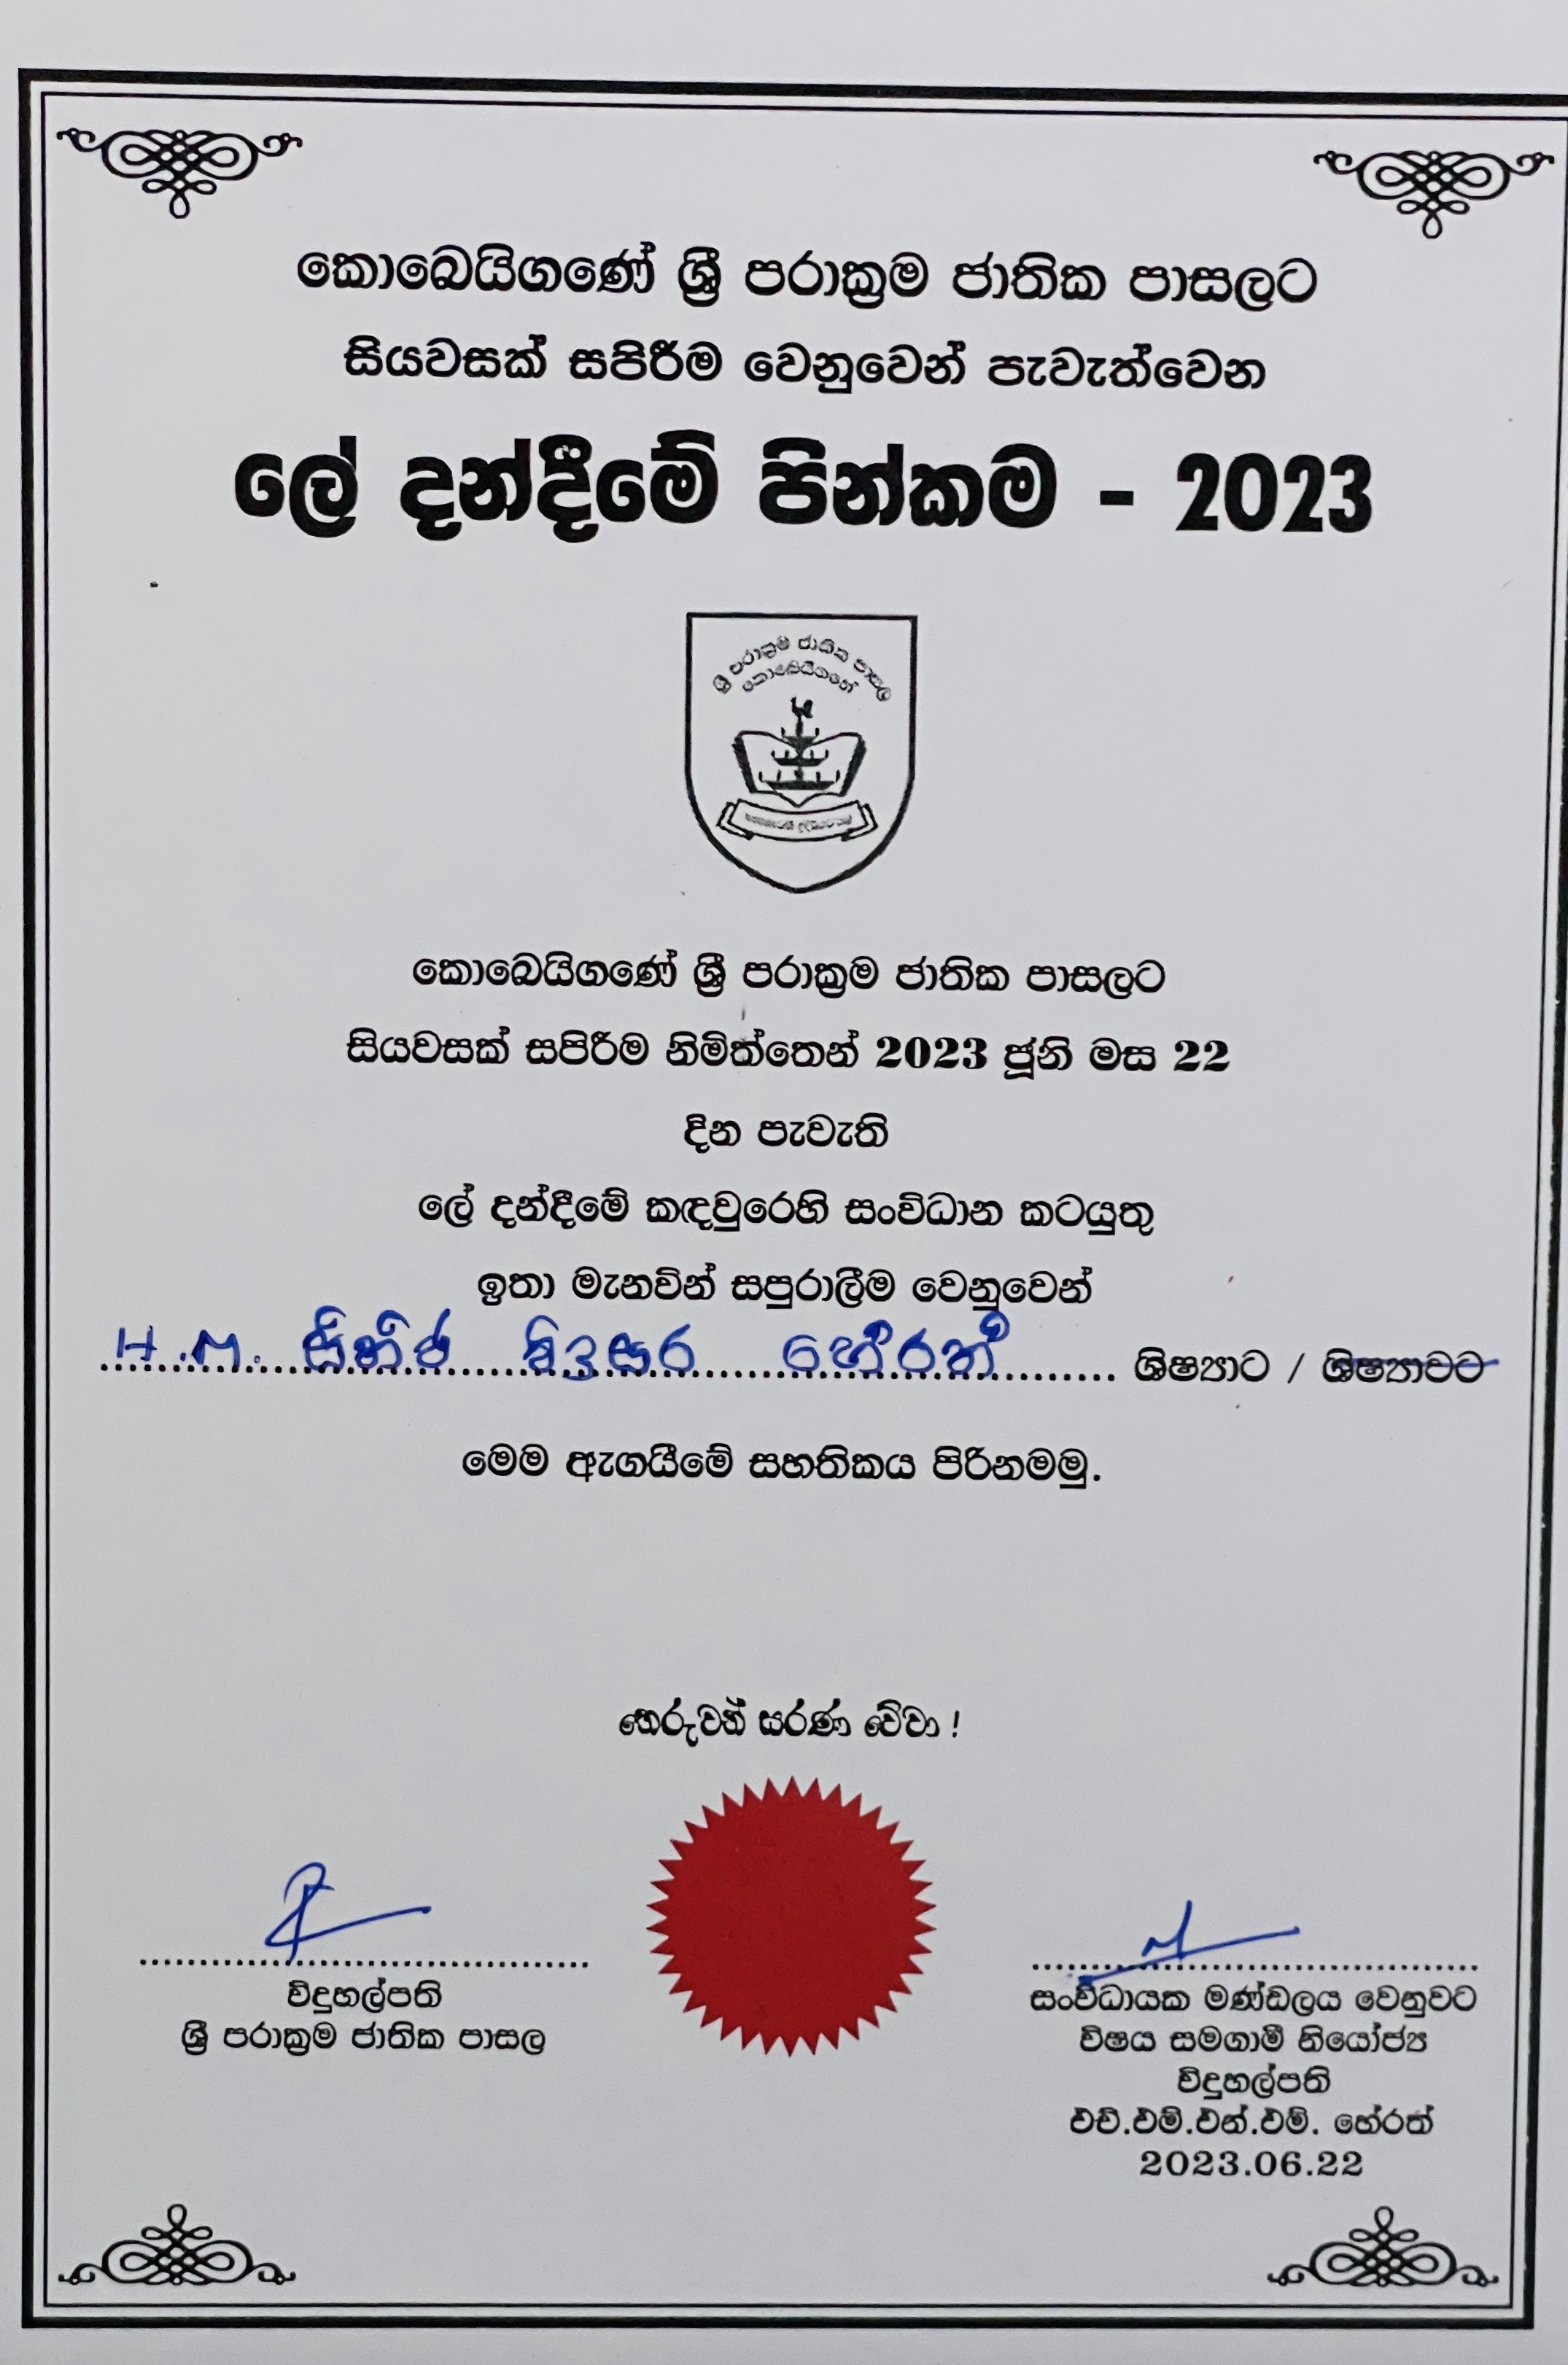 කොබෙයිගණේ ශ්‍රී පරාක්‍රම ජාතික පාසලට
සියවසක් සපිරීම වෙනුවෙන් පැවැත්වෙන
ලේ දන්දීමේ පින්කම - 2023
ශ්‍රී පරාක්‍රම ජාතික පාසල
කොබෙයිගණේ
කොබෙයිගණේ ශ්‍රී පරාක්‍රම ජාතික පාසලට
සියවසක් සපිරීම නිමිත්තෙන් 2023 ජූනි මස 22
දින පැවැති
ලේ දන්දීමේ කඳවුරෙහි සංවිධාන කටයුතු
ඉතා මැනවින් සපුරාලීම වෙනුවෙන්
H.M. හේරත් ශිෂ්‍යාට / ශිෂ්‍යාවට
මෙම ඇගයීමේ සහතිකය පිරිනමමු.
තෙරුවන් සරණ වේවා !
විදුහල්පති
ශ්‍රී පරාක්‍රම ජාතික පාසල
සංවිධායක මණ්ඩලය වෙනුවට
විෂය සමගාමී නියෝජ්‍ය
විදුහල්පති
එච්.එම්.එන්.එම්. හේරත්
2023.06.22